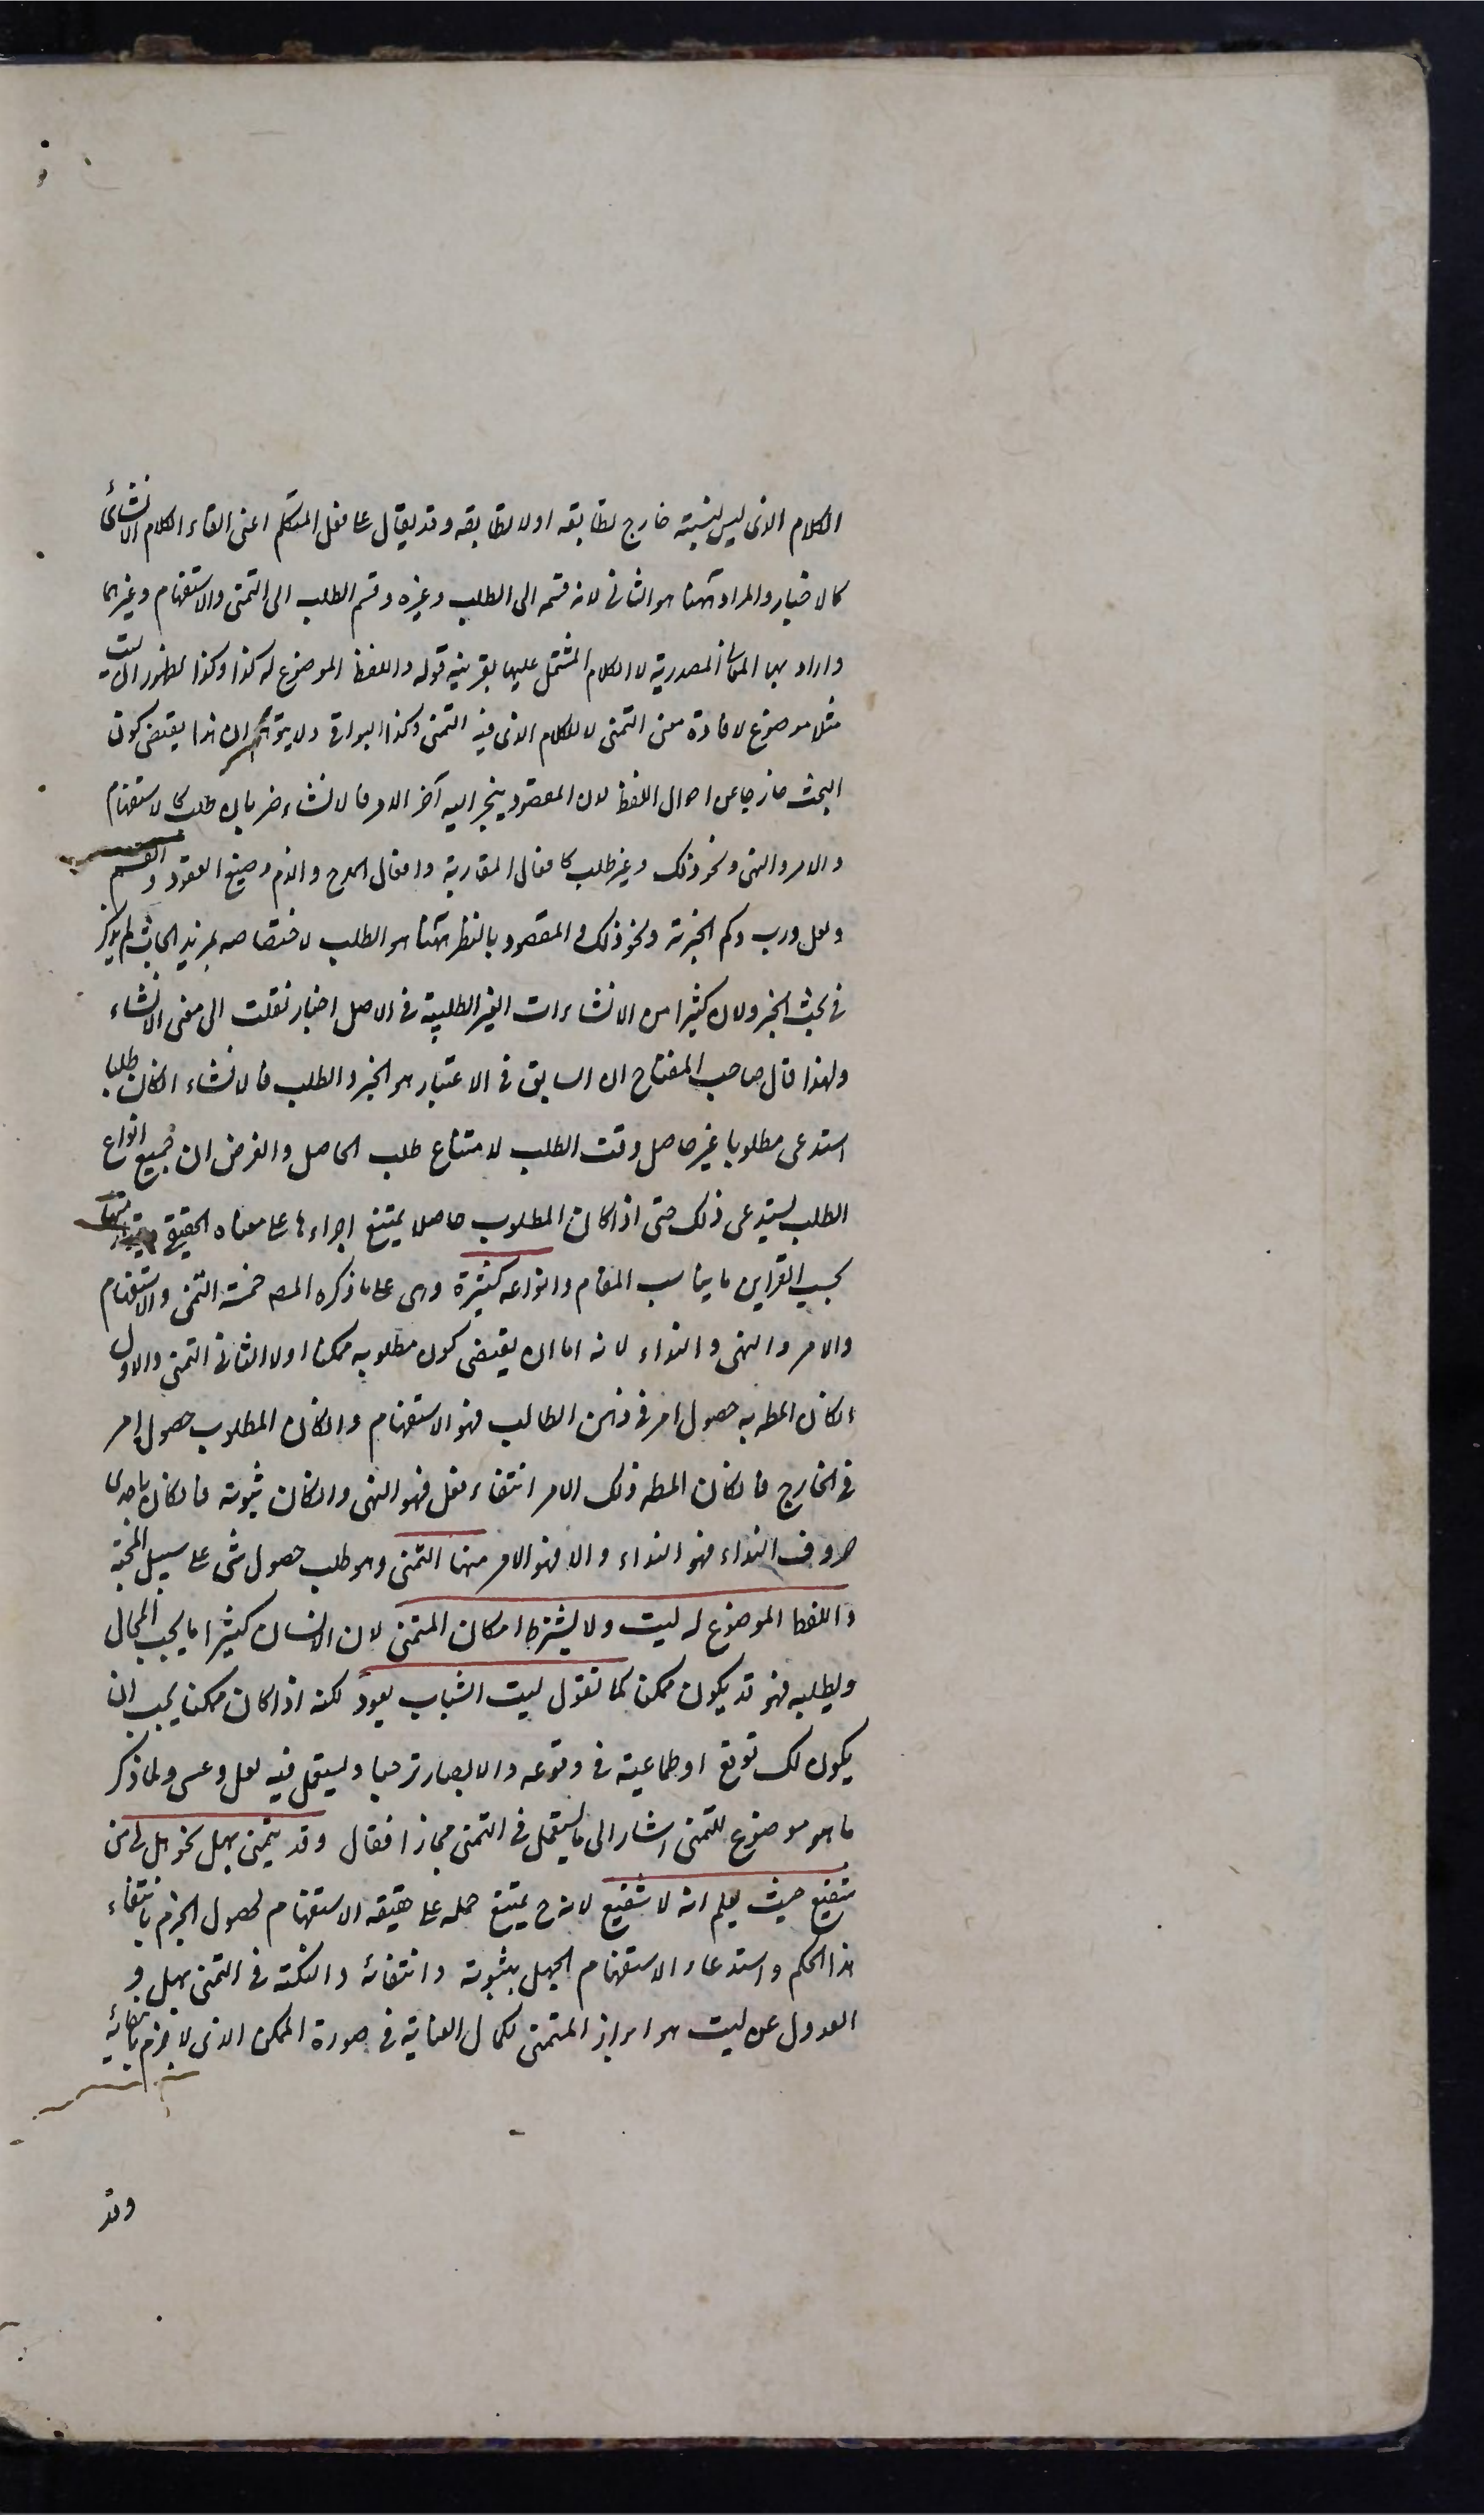 الكلام الذى ليس لنسبته خارج تطابقه او لا تطابقه وقد يقال على فعل المتكلم اعنى القاء الكلام الانشائى
كالاخبار والمراد ههنا هو الثانى لانه قسمه الى الطلب وغيره وقسم الطلب الى التمنى والاستفهام وغيرهما
واراد بها المعانى المصدرية لا الكلام المشتمل عليها بقرينة قوله واللفظ الموضوع له كذا وكذا لظهور ان ليت
مثلا موضوع لافادة معنى التمنى لا للكلام الذى فيه التمنى وكذا البواقى ولا يتوهم ان هذا يقتضى كون
البحث خارجا عن احوال اللفظ لان المقصود ينجر اليه آخر الامر فالانشاء ضربان طلب كالاستفهام
والامر والنهى ونحو ذلك وغير طلب كافعال المقاربة وافعال المدح والذم وصيغ العقود والقسم
ولعل ورب وكم الخبرية ونحو ذلك والمقصود بالنظر ههنا هو الطلب لاختصاصه بمزيد ابحاث لم يذكر
فى بحث الخبر ولان كثيرا من الانشاءات الغير الطلبية فى الاصل اخبار نقلت الى معنى الانشاء
ولهذا قال صاحب المفتاح ان السابق فى الاعتبار هو الخبر والطلب فالانشاء ان كان طلبا
استدعى مطلوبا غير حاصل وقت الطلب لامتناع طلب الحاصل والغرض ان جميع انواع
الطلب يستدعى ذلك حتى اذا كان المطلوب حاصلا يمتنع اجراءها على معناه الحقيقى ويتولد منها
بحسب القراين ما يناسب المقام وانواعه كثيرة وهى على ما ذكره المصـ خمسة التمنى والاستفهام
والامر والنهى والنداء لانه اما ان يقتضى كون مطلوبه ممكنا او لا الثانى التمنى والاول
ان كان المطـ به حصول امر فى ذهن الطالب فهو الاستفهام وان كان المطلوب حصول امر
فى الخارج فان كان المطـ ذلك الامر انتفاء فعل فهو النهى وان كان ثبوته فان كان باحدى
حروف النداء فهو النداء والا فهو الامر منها التمنى وهو طلب حصول شئ على سبيل المحبة
واللفظ الموضوع له ليت ولا يشترط امكان المتمنى لان الانسان كثيرا ما يحب المحال
ويطلبه فهو قد يكون ممكن كما تقول ليت الشباب يعود لكنه اذا كان ممكنا يجب ان
يكون لك توقع او طماعية فى وقوعه والا لصار ترجيا ويستعمل فيه لعل وعسى ولما ذكر
ما هو موضوع للتمنى اشار الى ما يستعمل فى التمنى مجازا فقال وقد يتمنى بهل نحو هل لى من
شفيع حيث يعلم ان لا شفيع لانه ح يمتنع حمله على حقيقة الاستفهام لحصول الجزم بانتفاء
هذا الحكم واستدعاء الاستفهام الجهل بثبوته وانتفائه والنكتة فى التمنى بهل و
العدول عن ليت هو ابراز المتمنى لكمال العناية فى صورة الممكن الذى لا جزم بانتفائه
وقد